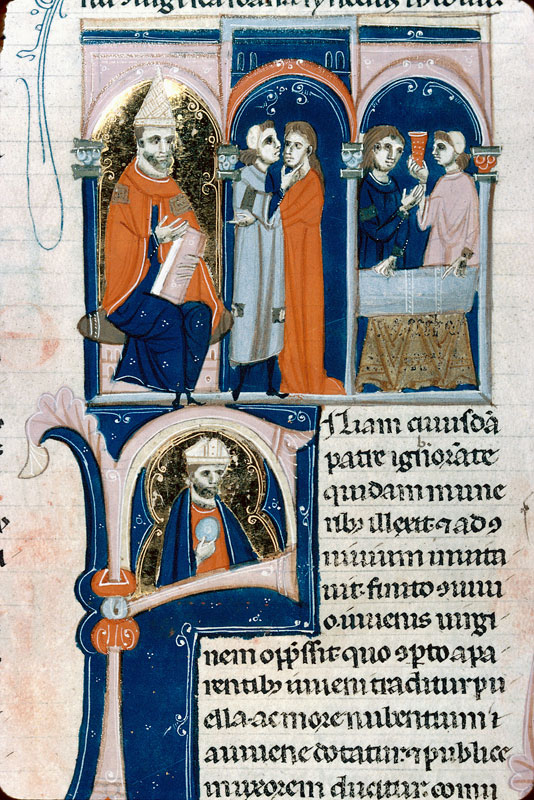 Filiam cuiusdã
patre ignorãte
quidam mune
ribꝯ illexit ⁊ ad ꝯ
uiuium inuita
uit. finito ꝯuiui
o. iuuenis uirgi
nem opp̃ssit. quo ꝯpto a pa
rentibꝯ iuueni traditur pu
ella. ac more nubentium
a iuuene dotatur. ⁊ publice
in uxorem ducitur.